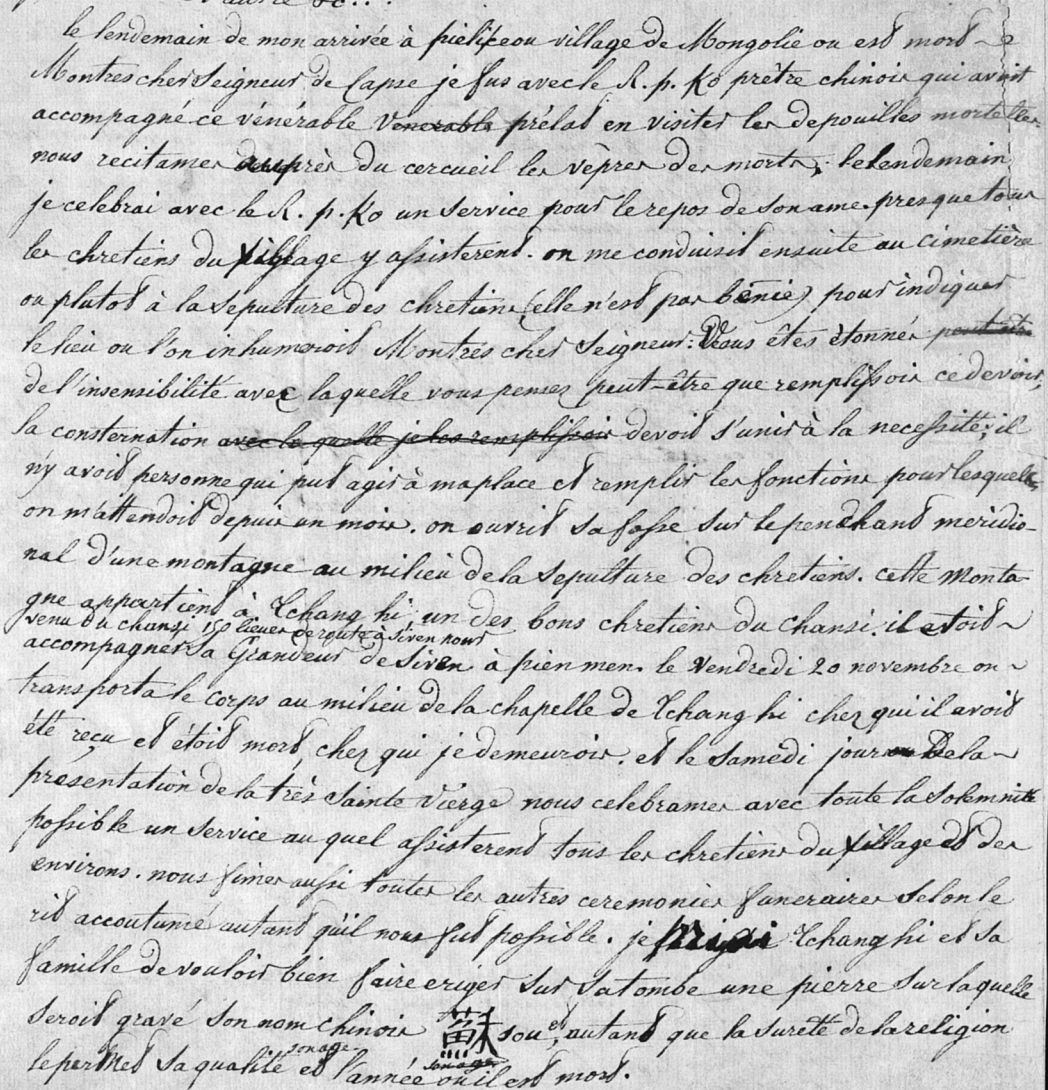 le lendemain de mon arrivée à pielikeou village de Mongolie ou est mort
Mon tres cher Seigneur de Capse je fus avec le R. p. Ko prêtre chinois qui avoit
accompagné ce vénérable venerable prélat en visiter les depouilles mortelles
nous recitames auprès du cercueil les vêpres des morts; le lendemain
je celebrai avec le R. p. Ko un service pour le repos de son ame. presque tous
les chretiens du village y assisterent. on me conduisit ensuite au cimetière
ou plutot à la sepulture des chretiens (elle n'est pas bénie) pour indiquer
le lieu ou l'on inhumeroit Mon tres cher Seigneur: Vous êtes étonnés peut être
de l'insensibilité avec laquelle vous pensez peut-être que remplissois ce devoir,
la consternation avec la quelle je les remplissois devoit s'unir à la necessité; il
n'y avoit personne qui put agir à ma place et remplir les fonctions pour lesquelles
on m'attendoit depuis un mois. on ouvrit sa fosse sur le penchant meridio-
nal d'une montagne au milieu de la sepulture des chretiens. cette monta-
gne appartient à Tchang hi un des bons chretiens du chansi. il etoit
venu du chansi 150 lieues de route à Siven nous
accompagner sa Grandeur de Siven à pien men. le Vendredi 20 novembre on
transporta le corps au milieu de la chapelle de Tchang hi chez qui il avoit
été reçu et étoit mort, chez qui je demeurois. et le samedi jour de la
présentation de la très sainte vierge nous celebrames avec toute la solemnité
possible un service au quel assisterent tous les chretiens du village et des
environs. nous fimes aussi toutes les autres ceremonies funeraires selon le
rit accoutumé autant qu'il nous fut possible. je priai Tchang hi et sa
famille de vouloir bien faire eriger sur sa tombe une pierre sur laquelle
seroit gravé son nom chinois 蘇 sou, et autant que la sureté de la religion
le permet sa qualité et son age l'année ou il est mort.
son age